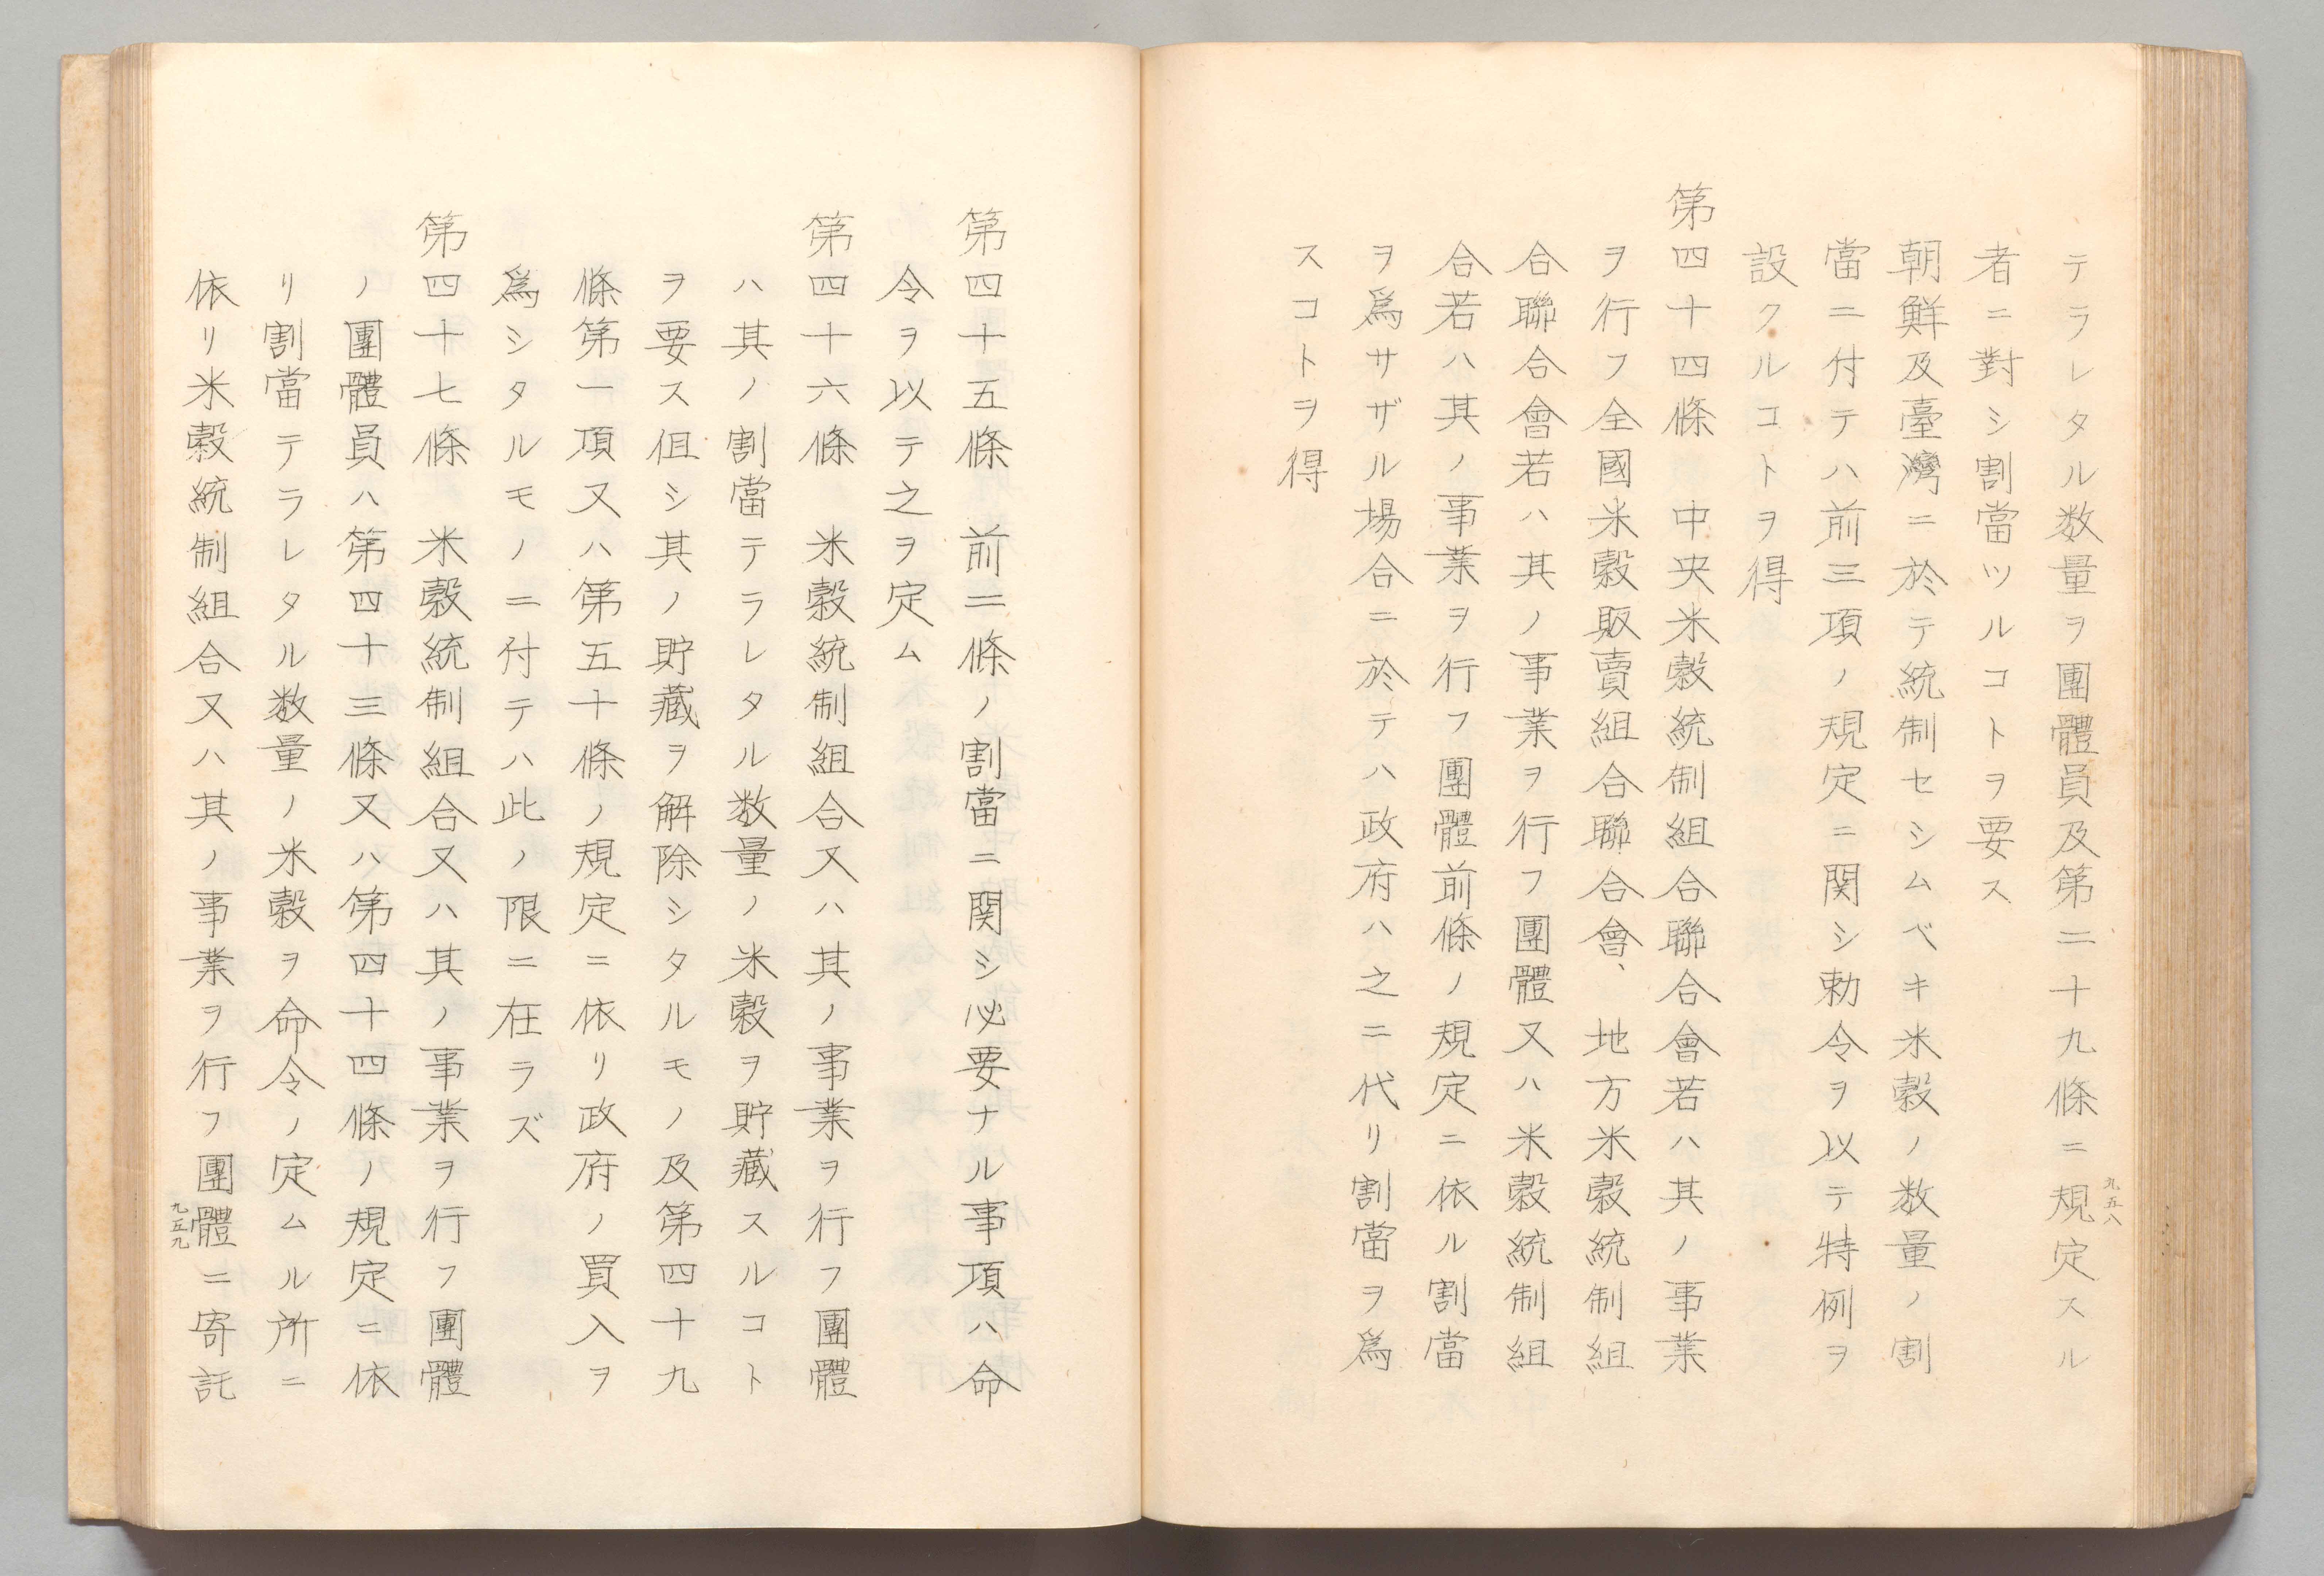 テラレタル数量ヲ團體員及第二十九條ニ規定スル
者ニ對シ割當ツルコトヲ要ス
朝鮮及臺灣ニ於テ統制セシムベキ米穀ノ数量ノ割
當ニ付テハ前三項ノ規定ニ関シ勅令ヲ以テ特例ヲ
設クルコトヲ得
第四十四條　中央米穀統制組合聯合會若ハ其ノ事業
ヲ行フ全國米穀販賣組合聯合會、地方米穀統制組
合聯合會若ハ其ノ事業ヲ行フ團體又ハ米穀統制組
合若ハ其ノ事業ヲ行フ團體前條ノ規定ニ依ル割當
ヲ爲サザル場合ニ於テハ政府ハ之ニ代リ割當ヲ爲
スコトヲ得
九五八
第四十五條　前二條ノ割當ニ関シ必要ナル事項ハ命
令ヲ以テ之ヲ定ム
第四十六條　米穀統制組合又ハ其ノ事業ヲ行フ團體
ハ其ノ割當テラレタル数量ノ米穀ヲ貯藏スルコト
ヲ要ス但シ其ノ貯藏ヲ解除シタルモノ及第四十九
條第一項又ハ第五十條ノ規定ニ依リ政府ノ買入ヲ
爲シタルモノニ付テハ此ノ限ニ在ラズ
第四十七條　米穀統制組合又ハ其ノ事業ヲ行フ團體
ノ團體員ハ第四十三條又ハ第四十四條ノ規定ニ依
リ割當テラレタル数量ノ米穀ヲ命令ノ定ムル所ニ
依リ米穀統制組合又ハ其ノ事業ヲ行フ團體ニ寄託
九五九